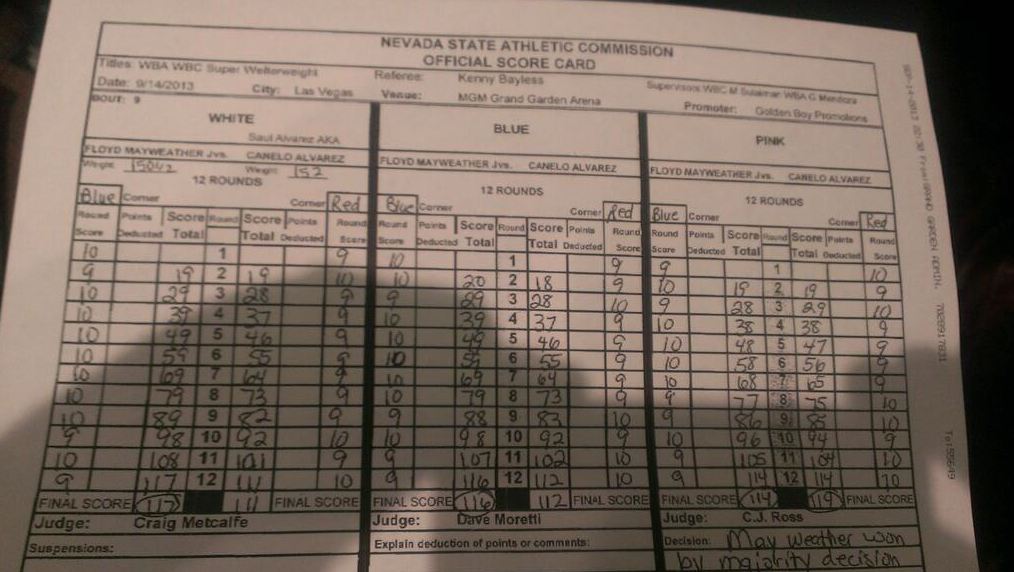 NEVADA STATE ATHLETIC COMMISSION
OFFICIAL SCORE CARD
Titles: WBA WBC Super Welterweight Referee: Kenny Bayless Supervisors WBC M Sulaiman WBA G Mendoza
Date: 9/14/2013 City: Las Vegas Venue: MGM Grand Garden Arena Promoter: Golden Boy Promotions
BOUT: 9
WHITE BLUE PINK
Saul Alvarez AKA
FLOYD MAYWEATHER Jvs. CANELO ALVAREZ FLOYD MAYWEATHER Jvs. CANELO ALVAREZ FLOYD MAYWEATHER Jvs. CANELO ALVAREZ
Weight 150 1/2 Weight 152
12 ROUNDS 12 ROUNDS 12 ROUNDS
Blue Corner Corner Red Blue Corner Corner Red Blue Corner Corner Red
Round Points Score Round Score Points Round Round Points Score Round Score Points Round Round Points Score Round Score Points Round
Score Deducted Total Total Deducted Score Score Deducted Total Total Deducted Score Score Deducted Total Total Deducted Score
10 1 9 10 1 9 9 1 10
9 19 2 19 10 10 20 2 18 9 10 19 2 19 9
10 29 3 28 9 9 29 3 28 10 9 28 3 29 10
10 39 4 37 9 10 39 4 37 9 10 38 4 38 9
10 49 5 46 9 10 49 5 46 9 10 48 5 47 9
10 59 6 55 9 10 59 6 55 9 10 58 6 56 9
10 69 7 64 9 10 69 7 64 9 10 68 7 65 9
10 79 8 73 9 10 79 8 73 9 9 77 8 75 10
10 89 9 82 9 9 88 9 83 10 9 86 9 85 10
9 98 10 92 10 10 98 10 92 9 10 96 10 94 9
10 108 11 101 9 9 107 11 102 10 9 105 11 104 10
9 117 12 111 10 9 116 12 112 10 9 114 12 114 10
FINAL SCORE 117 111 FINAL SCORE FINAL SCORE 116 112 FINAL SCORE FINAL SCORE 114 114 FINAL SCORE
Judge: Craig Metcalfe Judge: Dave Moretti Judge: C.J. Ross
Suspensions: Explain deduction of points or comments: Decision: May weather won
by majority decision